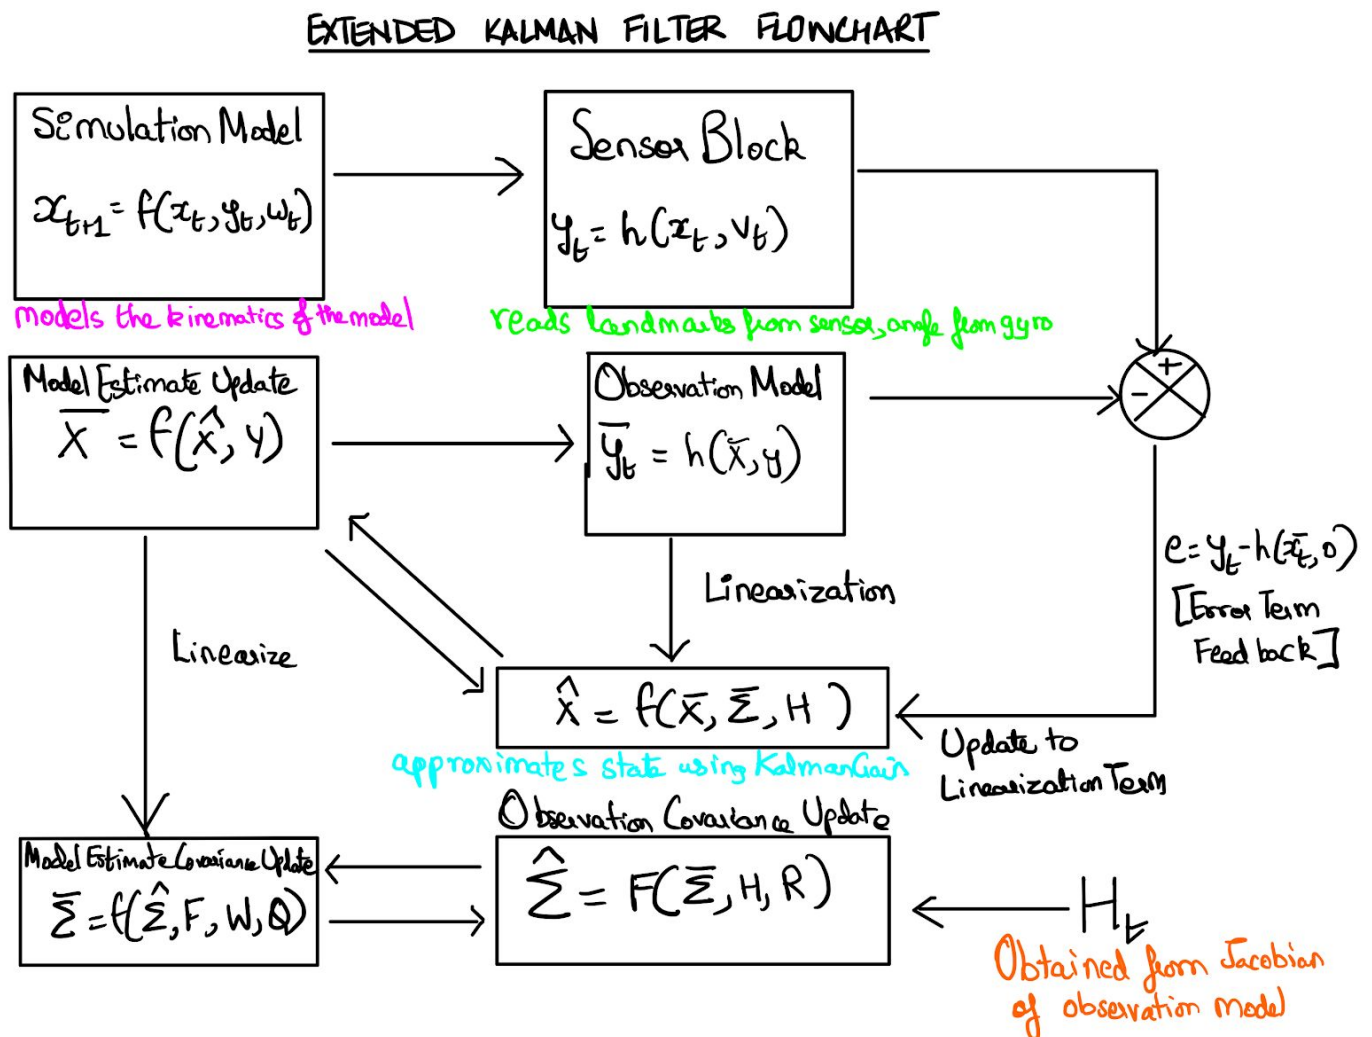 EXTENDED KALMAN FILTER FLOWCHART
Simulation Model
x_{t+1} = f(x_t, y_t, w_t)
models the kinematics of the model
Sensor Block
y_t = h(x_t, v_t)
reads landmarks from sensor, angle from gyro
Model Estimate Update
X̅ = f(X̂, y)
Observation Model
y̅_t = h(x̅, y)
+
-
e = y_t - h(x̅_t, 0)
[Error Term
Feed back]
Linearization
Linearize
X̂ = f(X̅, Σ̅, H)
approximates state using Kalman Gain
Update to
Linearization Term
Observation Covariance Update
Σ̂ = F(Σ̅, H, R)
Model Estimate Covariance Update
Σ̅ = f(Σ̂, F, W, Q)
H_t
Obtained from Jacobian
of observation model